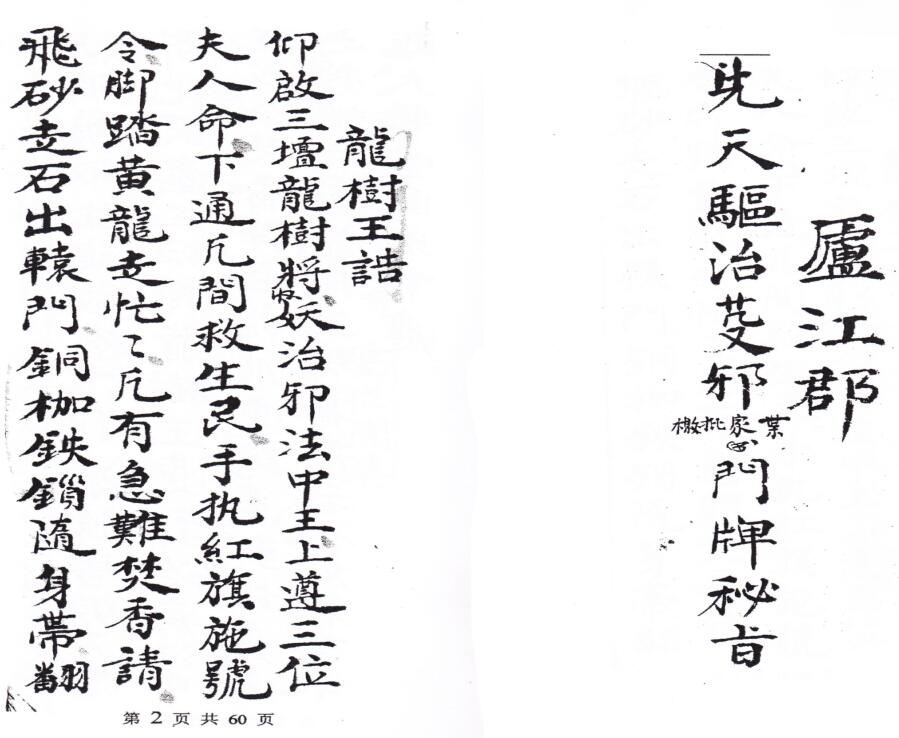 廬江郡
先天驅治芟邪門牌秘旨
葉家批檄
龍樹王誥
仰啟三壇龍樹將收妖治邪法中王上遵三位
夫人命下通凡間救生民手执紅旗施號
令脚踏黄龍走忙〻凡有急難焚香請
飛砂走石出轅門銅枷鉄鎖隨身帶翻
第 2 页 共 60 页